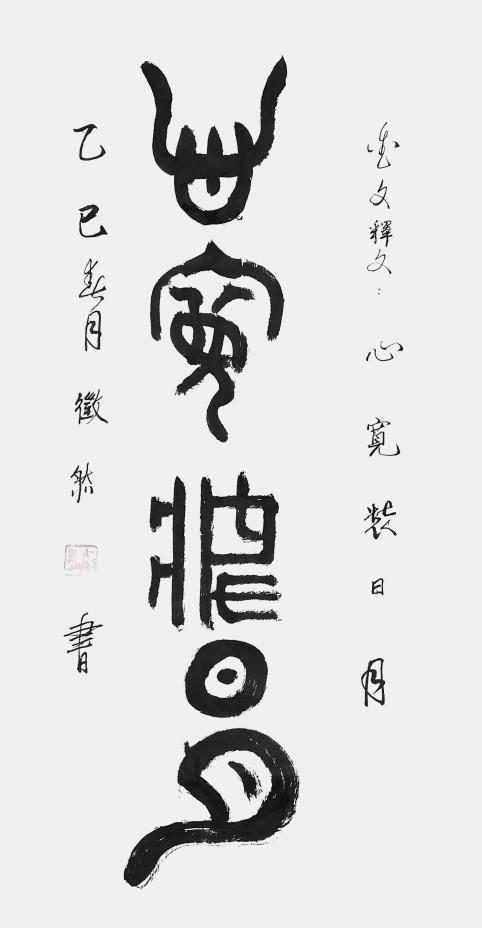 金文釋文：心寬裝日月
心寬裝日月
乙巳春月徵然書